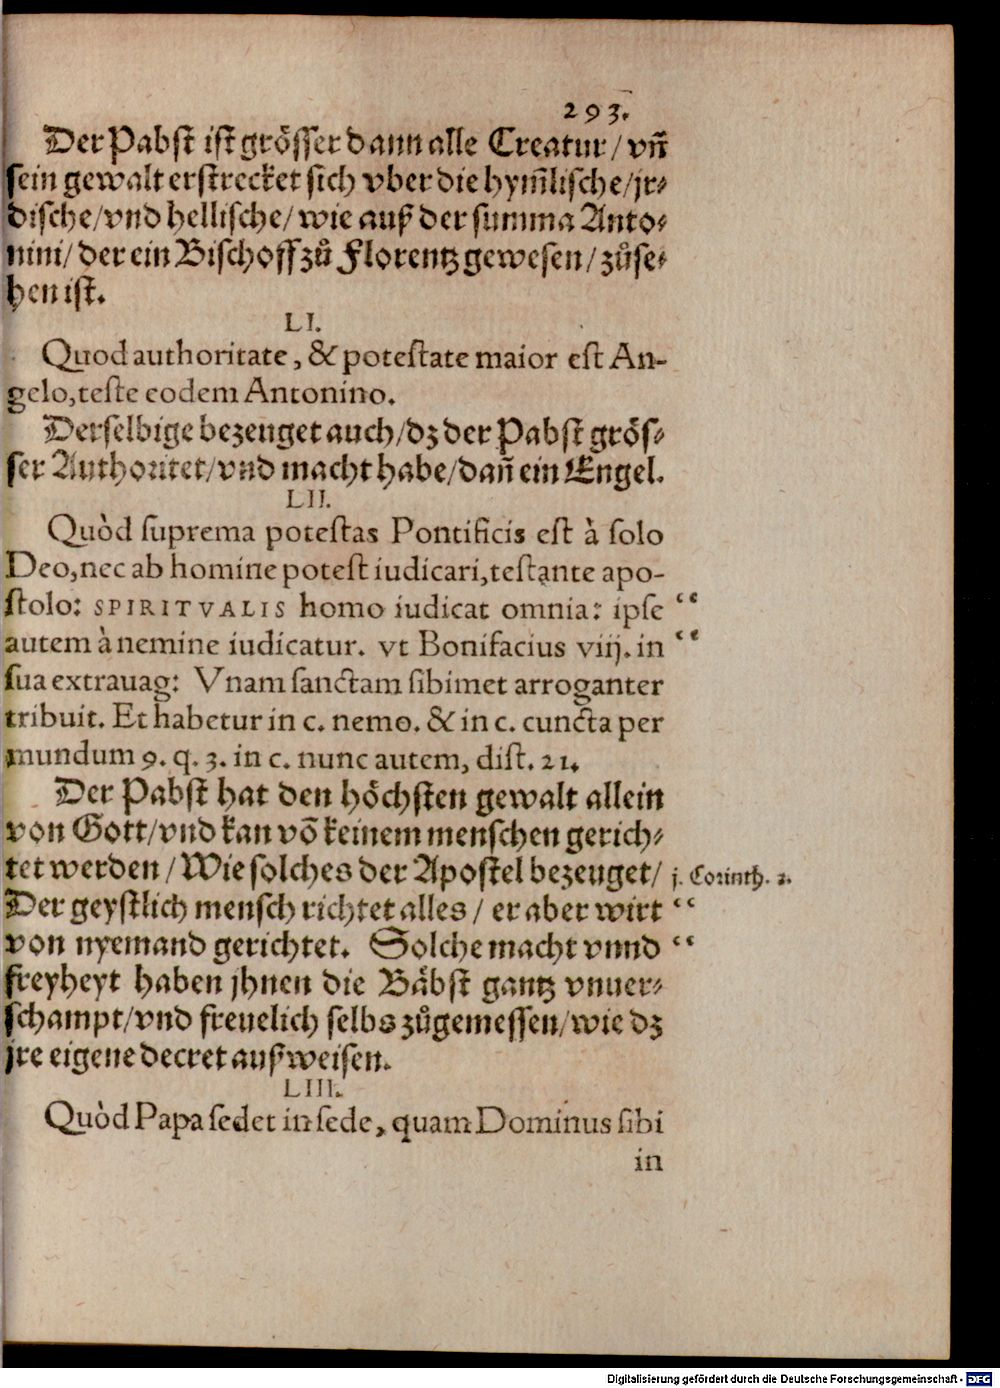 293.
Der Pabſt iſt gröſſer dann alle Creatur/ vn̄
ſein gewalt erſtrecket ſich vber die hym̄liſche/jr⸗
diſche/vnd helliſche/ wie auß der ſumma Anto⸗
nini/ der ein Biſchoff zů Florentz geweſen/ zůſe⸗
hen iſt.
LI.
Quod authoritate, & poteſtate maior eſt An-
gelo,teſte eodem Antonino.
Derſelbige bezeuget auch/dz der Pabſt gröſ⸗
ſer Authoritet/vnd macht habe/dañ ein Engel.
LII.
Quòd ſuprema poteſtas Pontificis eſt à ſolo
Deo,nec ab homine poteſt iudicari,teſtante apo-
ſtolo: SPIRITVALIS homo iudicat omnia: ipſe “
autem à nemine iudicatur. vt Bonifacius viij. in “
ſua extrauag: Vnam ſanctam ſibimet arroganter
tribuit. Et habetur in c. nemo. & in c. cuncta per
mundum 9. q. 3. in c. nunc autem, diſt. 21.
Der Pabſt hat den höchſten gewalt allein
von Gott/vnd kan võ keinem menſchen gerich⸗
tet werden/ Wie ſolches der Apoſtel bezeuget/ j. Corinth. 2.
Der geyſtlich menſch richtet alles/ er aber wirt “
von nyemand gerichtet. Solche macht vnnd “
freyheyt haben jhnen die Bäbſt gantz vnuer⸗
ſchampt/vnd freuelich ſelbs zůgemeſſen/wie dz
jre eigene decret außweiſen.
LIII.
Quòd Papa ſedet in ſede, quam Dominus ſibi
in
Digitalisierung gefördert durch die Deutsche Forschungsgemeinschaft - DFG